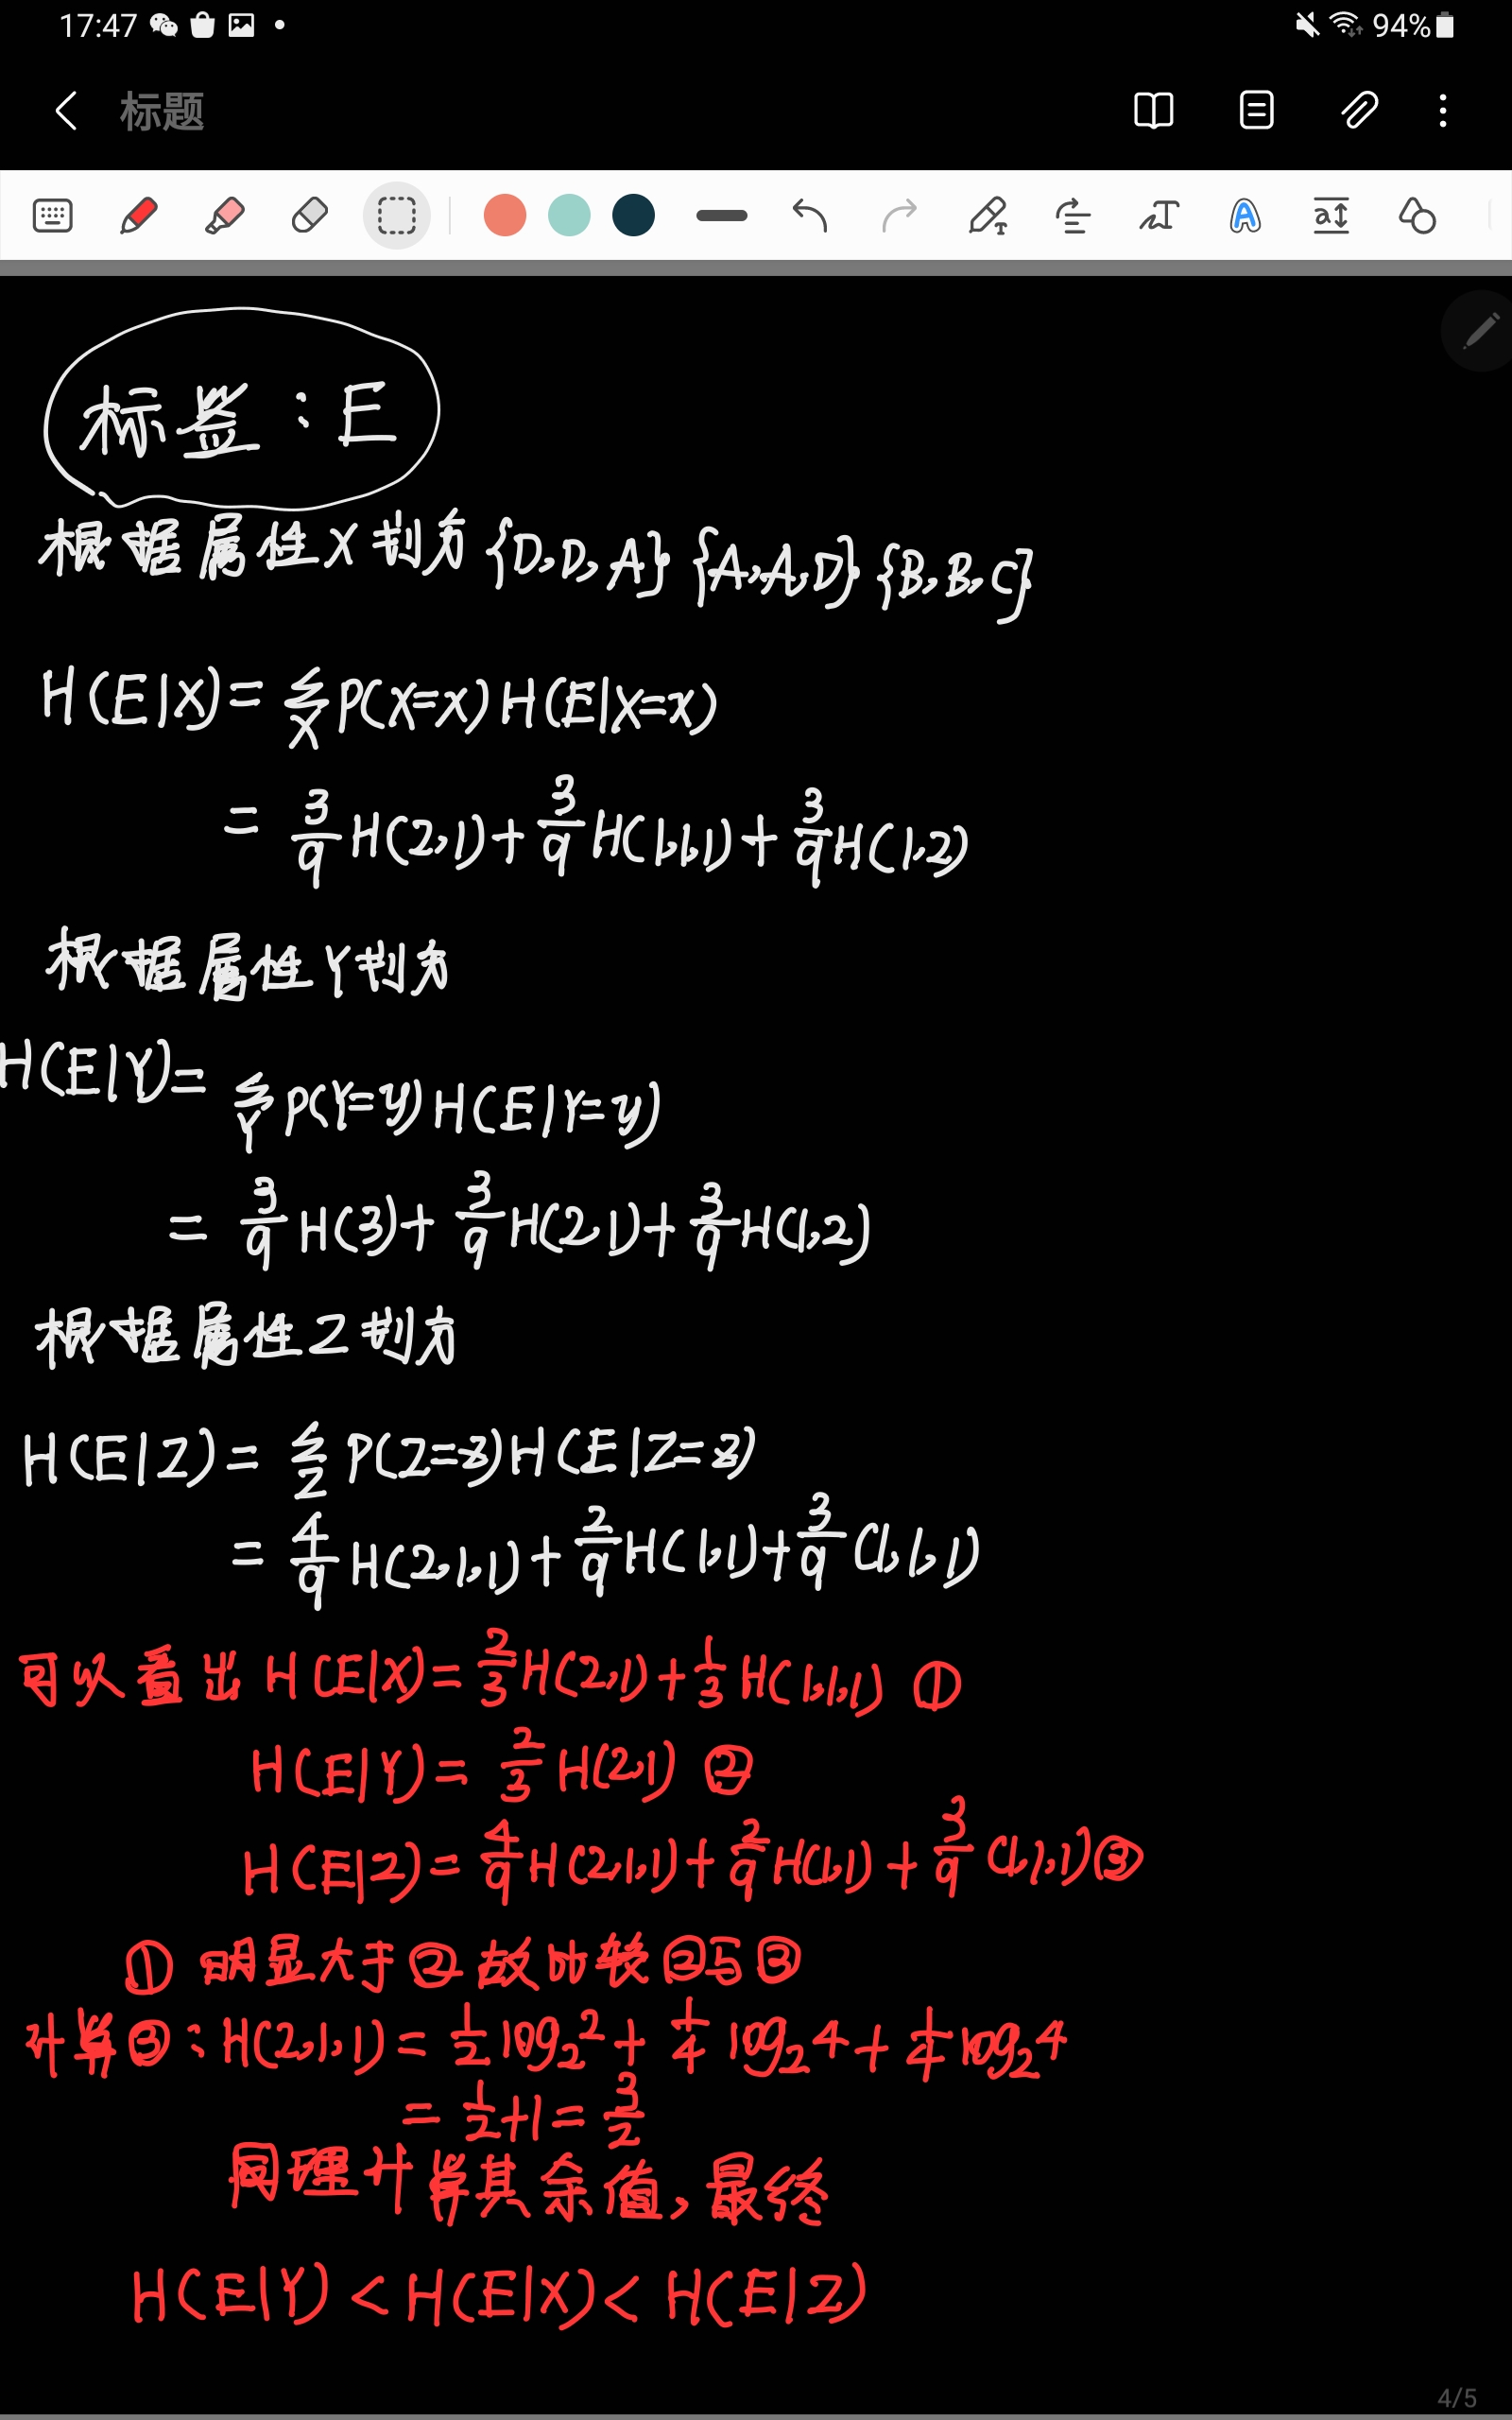 17:47 94%
标题
标签:E
根据属性X划分{D,D,A}{A,A,D}{B,B,C}
H(E|X)=∑X P(X=x)H(E|X=x)
= 3/9 H(2,1)+3/9 H(1,1,1)+3/9 H(1,2)
根据属性Y划分
H(E|Y)=∑Y P(Y=y)H(E|Y=y)
= 3/9 H(3)+3/9 H(2,1)+3/9 H(1,2)
根据属性Z划分
H(E|Z)=∑Z P(Z=z)H(E|Z=z)
= 4/9 H(2,1,1)+2/9 H(1,1)+3/9 (1,1,1)
可以看出 H(E|X)=2/3 H(2,1)+1/3 H(1,1,1) ①
H(E|Y)=2/3 H(2,1) ②
H(E|Z)=4/9 H(2,1,1)+2/9 H(1,1)+3/9 (1,1,1)③
① 明显大于②故比较②与③
计算③:H(2,1,1)=1/2 log₂2+1/4 log₂4+1/4 log₂4
=1/2+1=3/2
同理计算其余值,最终
H(E|Y)<H(E|X)<H(E|Z)
4/5